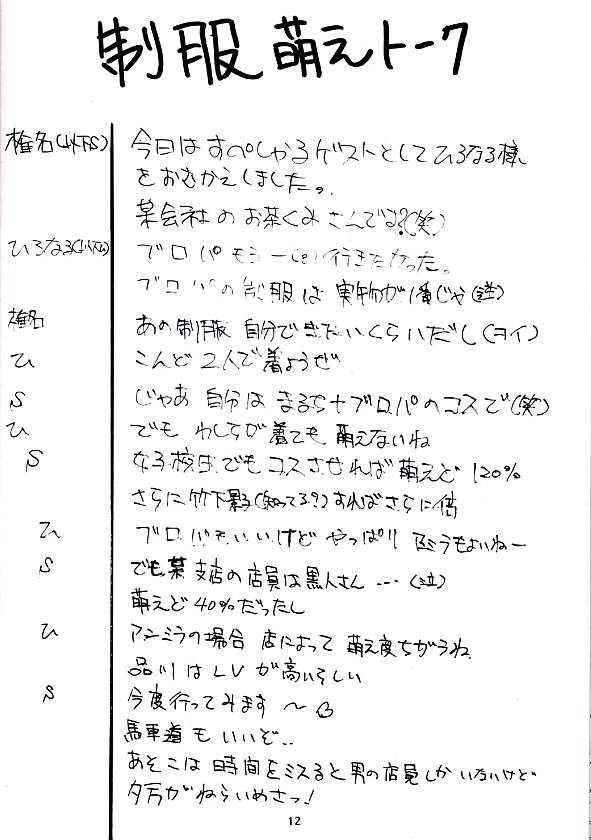 制服 萌えトーク
椎名(以下S) 今日は すぺしゃるゲストとして ひろなる様
をおむかえしました。
某会社 の お茶くみ さんでよ?(笑)
ひろなる(以下ひ) ブロパ もう一 行きたかった。
ブロパの制服は 実物が1番じゃ
椎名 あの制服 自分で きたいくらいだし(ヨイ)
ひ こんど 2人で 着ようぜ
S じゃあ 自分は まるち+ブロパのコスで(笑)
ひ でも わしらが 着ても 萌えないね
S 女子校生でもコスさせれば萌えど 120%
さらに竹下 (知ってる?)すればさらに倍
ひ ブロパもいいけど やっぱり もよいねー
S でも某 支店の店員は黒人さん … (泣)
萌えど 40%だったし
ひ アンミラの場合 店によって 萌え度ちがうね
品川はLVが高いらしい
S 今度行ってみます 〜
馬車道 も いいぞ..
あそこは 時間をミスると男の店員しか いないけど
夕方がねらいめさっ!
12